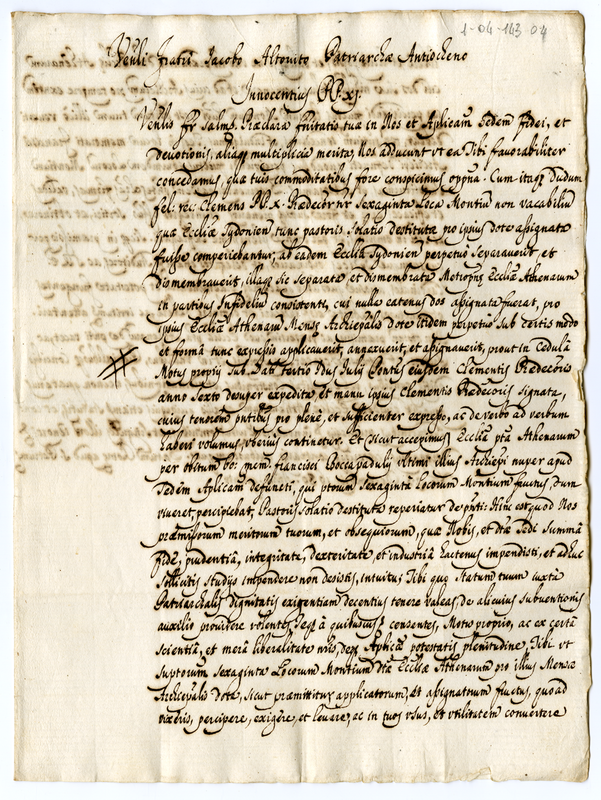 1-04-143 04
Venli Fratri Jacobo Altovito Patriarchæ Antiocheno
Innocentius PP. xj.
Venlis fr salms. Præclara fritatis tuæ in Nos et Aplicam Sedem fidei, et
devotionis, aliaqz multiplicia merita, Nos adducunt ut ea Tibi favorabiliter
concedamus, quæ tuis commoditatibus fore conspicimus oppna. Cum itaqz dudum
fel: rec: Clemens PP. x. Prædecor nr Sexaginta Loca Montiu non vacabiliu
quæ Eccliæ Sydonien tunc pastoris solatio destitutæ pro ipsius dote assignata
fuisse comperiebantur, ab eadem Ecclia Sydonien perpetuo separaverit, et
dismembraverit, illaqz sic separata et dismembrata Metropnæ Eccliæ Athenarum
in partibus Infidelium consistenti, cui nulla eatenus dos assignata fuerat, pro
ipsius Eccliæ Athenarum Mensæ Archiepalis dote itidem perpetuo sub certis modo
et forma tunc expressis applicaverit, annexuerit, et assignaverit, prout in Cedula
Motus proprij sub Dat: tertio Idus Julij Pontus eiusdem Clementis Prædecoris
anno Sexto desuper expedita et manu ipsius Clementis Prædecoris signata,
cuius tenorem pntibus pro plene, et sufficienter expresso, ac de verbo ad verbum
haberi volumus, uberius continetur. Et sicut accepimus Ecclia pta Athenarum
per obitum bo: mem: Francisci Boccapadulij ultimi illius Archiepi nuper apud
Sedem Aplicam defuncti, qui ptorum sexaginta Locorum Montium fructus, dum
viveret, percipiebat, Pastoris solatio destituta reperiatur de pnti: Hinc est quod Nos
præmissorum meritorum tuorum, et obsequiorum, quæ Nobis, et dtæ Sedi summa
fide, prudentia, integritate, dexteritate et industria hactenus impendisti, et adhuc
sollicitis studijs impendere non desistis, intuitu; Tibi quo statum tuum iuxta
Patriarchalis dignitatis exigentiam decentius tenere valeas, de alicuius subventionis
auxilio providere volentes, Teqz a quibusvis censentes, Motu proprio, ac ex certa
scientia, et mera liberalitate nris, deqz Aplicæ potestatis plenitudine, Tibi ut
suptorum sexaginta Locorum Montium dtæ Eccliæ Athenarum pro illius Mensæ
Archiepalis dote, sicut præmittitur applicatorum, et assignatorum fructus, quoad
vixeris, percipere, exigere, et levare, ac in tuos usus, et utilitatem convertere